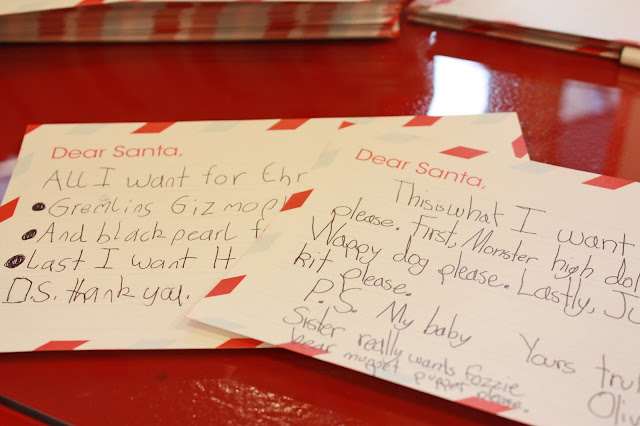 Dear Santa,
All I want for Chr
Gremlins Gizmo pl
And black pearl
Last I want H
D.S. thank you.
Dear Santa,
This is what I want
please. First, Monster high dol
Wappy dog please. Lastly, Ju
kit please.
P.S. My baby
Sister really wants Fozzie
bear muppet puppet please.
Yours tru
Oliv